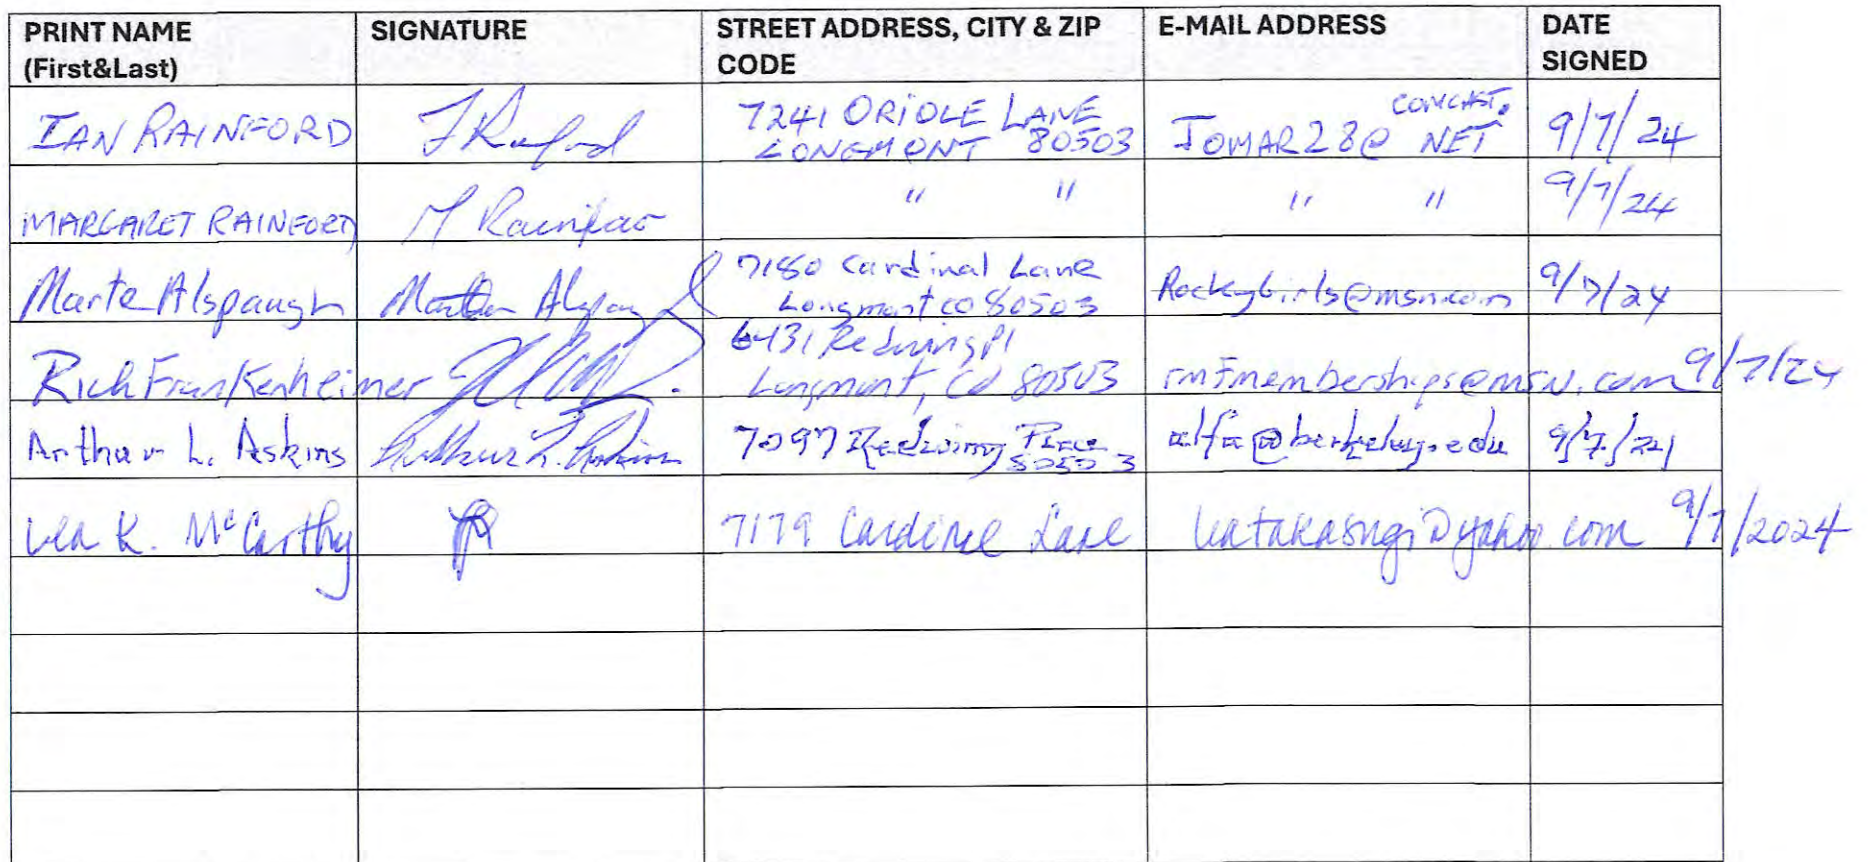 PRINT NAME (First&Last) SIGNATURE STREET ADDRESS, CITY & ZIP CODE E-MAIL ADDRESS DATE SIGNED
IAN RAINFORD 7241 ORIOLE LANE LONGMONT 80503 JOMAR28@ COMCAST. NET 9/7/24
MARGARET RAINFORD M Rainford " " " " 9/7/24
Marte Alspaugh 7180 Cardinal Lane Longmont CO 80503 Rockygirls@msn.com 9/7/24
Rich Frankenheimer 6431 Redwing Pl Longmont, CO 80503 rmfmemberships@msn.com 9/7/24
Arthur L. Askins Arthur L. Askins 7097 Redwing Place 80503 alfa@berkeley.edu 9/7/24
K. McCarthy 7179 Cardinal Lane @yahoo.com 9/7/2024